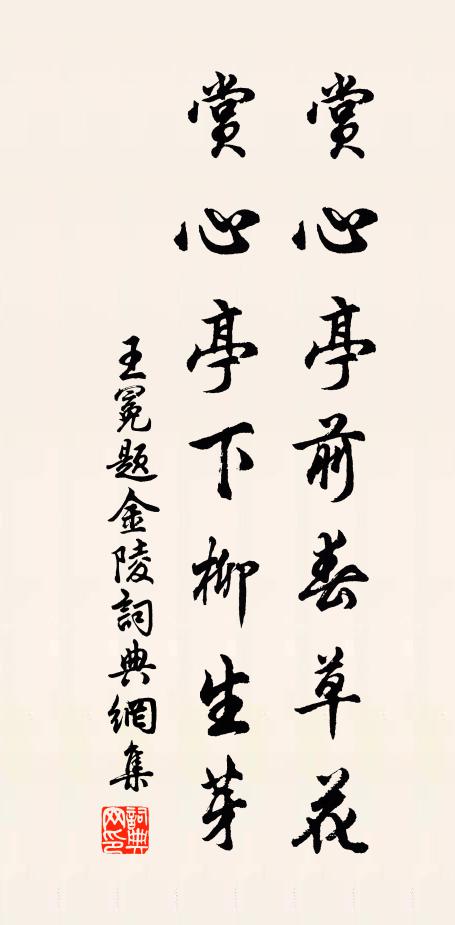 赏心亭前春草花
赏心亭下柳生芽
王冕题金陵詞典網集
詞典网印